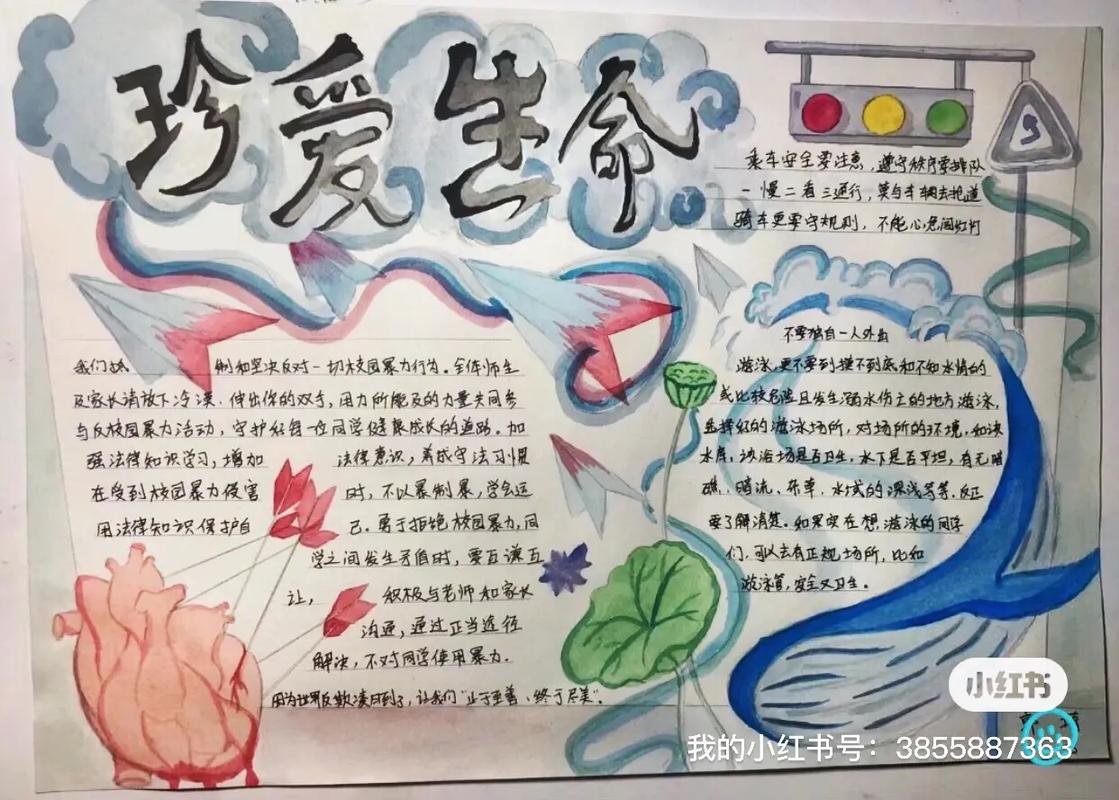 珍爱生命
乘车安全要注意，遵守秩序要排队
一慢二看三通行，莫与车辆去抢道
骑车更要守规则，不能心急闯红灯
我们抵制和坚决反对一切校园暴力行为。全体师生
及家长请放下冷漠，伸出你的双手，用力所能及的力量共同参
与反校园暴力活动，守护好每一位同学健康成长的道路。加
强法律知识学习，增加法律意识，养成守法习惯
在受到校园暴力侵害时，不以暴制暴，学会运
用法律知识保护自己。勇于拒绝校园暴力。同
学之间发生矛盾时，要互谦互
让，积极与老师和家长
沟通，通过正当途径
解决，不对同学使用暴力。
因为世界反欺凌日到了，让我们"止于至善、终于尽美"。
不要独自一人外出
游泳，更不要到摸不到底和不知水情的
或比较危险且发生溺水伤亡的地方游泳，
选择好的游泳场所，对场所的环境，如
水库，浴场是否卫生，水下是否平坦，有无暗
礁、暗流、杂草，水域的深浅等等，
要了解清楚。如果实在想游泳的同学
们，可以去有正规场所，比如
游泳馆，安全又卫生。
小红书
我的小红书号：3855887363